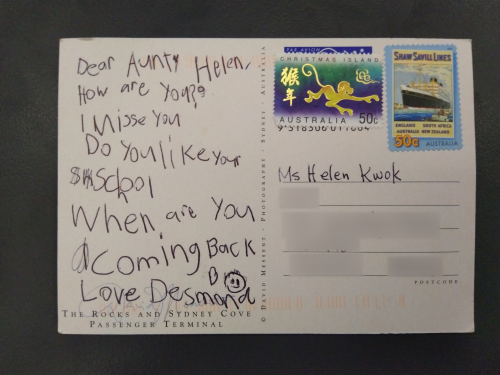 Dear Aunty Helen,
How are you??
I Misse You
Do You like Your
School
When are You
Coming Back
Love Desmond
THE ROCKS AND SYDNEY COVE
PASSENGER TERMINAL
© DAVID MESSENT · PHOTOGRAPHY · SYDNEY · AUSTRALIA
PAR AVION
CHRISTMAS ISLAND
猴
年
AUSTRALIA 50c
SHAW SAVILL LINES
ENGLAND SOUTH AFRICA
AUSTRALIA NEW ZEALAND
50c AUSTRALIA
Ms Helen Kwok
POSTCODE